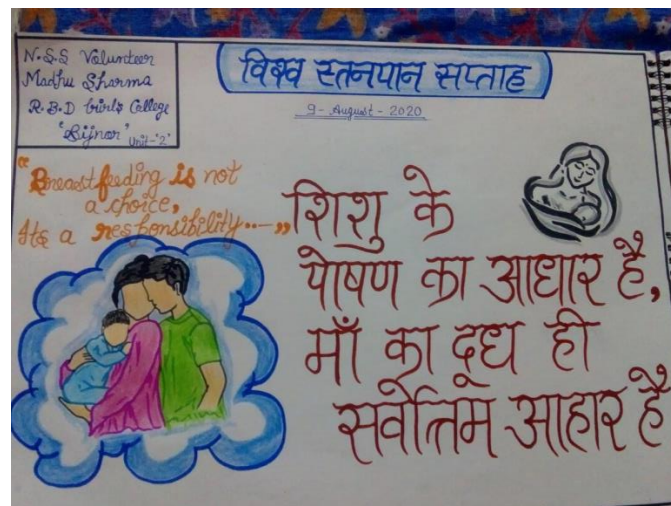 N.S.S Volunteer
Madhu Sharma
R.B.D Girls College
'Bijnor' Unit-'2'
विश्व स्तनपान सप्ताह
9- August - 2020
"Breastfeeding is not
a choice,
Its a responsibility....."
शिशु के
पोषण का आधार है,
माँ का दूध ही
सर्वोत्तम आहार है